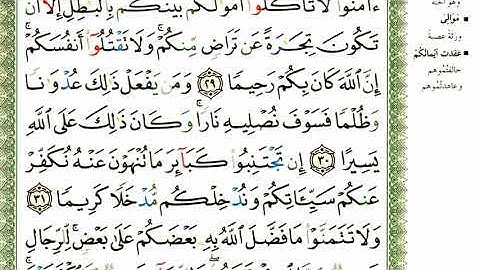 ءَامَنُوا۟ لَا تَأْكُلُوٓا۟ أَمْوَٰلَكُم بَيْنَكُم بِٱلْبَٰطِلِ إِلَّآ أَن
تَكُونَ تِجَٰرَةً عَن تَرَاضٍ مِّنكُمْ ۚ وَلَا تَقْتُلُوٓا۟ أَنفُسَكُمْ ۚ
إِنَّ ٱللَّهَ كَانَ بِكُمْ رَحِيمًا ٢٩ وَمَن يَفْعَلْ ذَٰلِكَ عُدْوَٰنًا
وَظُلْمًا فَسَوْفَ نُصْلِيهِ نَارًا ۚ وَكَانَ ذَٰلِكَ عَلَى ٱللَّهِ
يَسِيرًا ٣٠ إِن تَجْتَنِبُوا۟ كَبَآئِرَ مَا تُنْهَوْنَ عَنْهُ نُكَفِّرْ
عَنكُمْ سَيِّـَٔاتِكُمْ وَنُدْخِلْكُم مُّدْخَلًا كَرِيمًا ٣١
وَلَا تَتَمَنَّوْا۟ مَا فَضَّلَ ٱللَّهُ بِهِۦ بَعْضَكُمْ عَلَىٰ بَعْضٍ ۚ لِّلرِّجَالِ
■ مَوَالِيَ
ورثة عصبة
■ عقدت أيمانكم
حالفتموهم
وعاهدتموهم